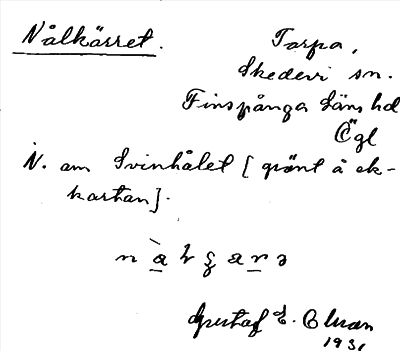 Nålkärret.
Torpa,
Skedevi sn.
Finspånga läns hd
Ögl
N. om Svinhålet [grönt å ek-
kartan].
Gustaf E.
1931